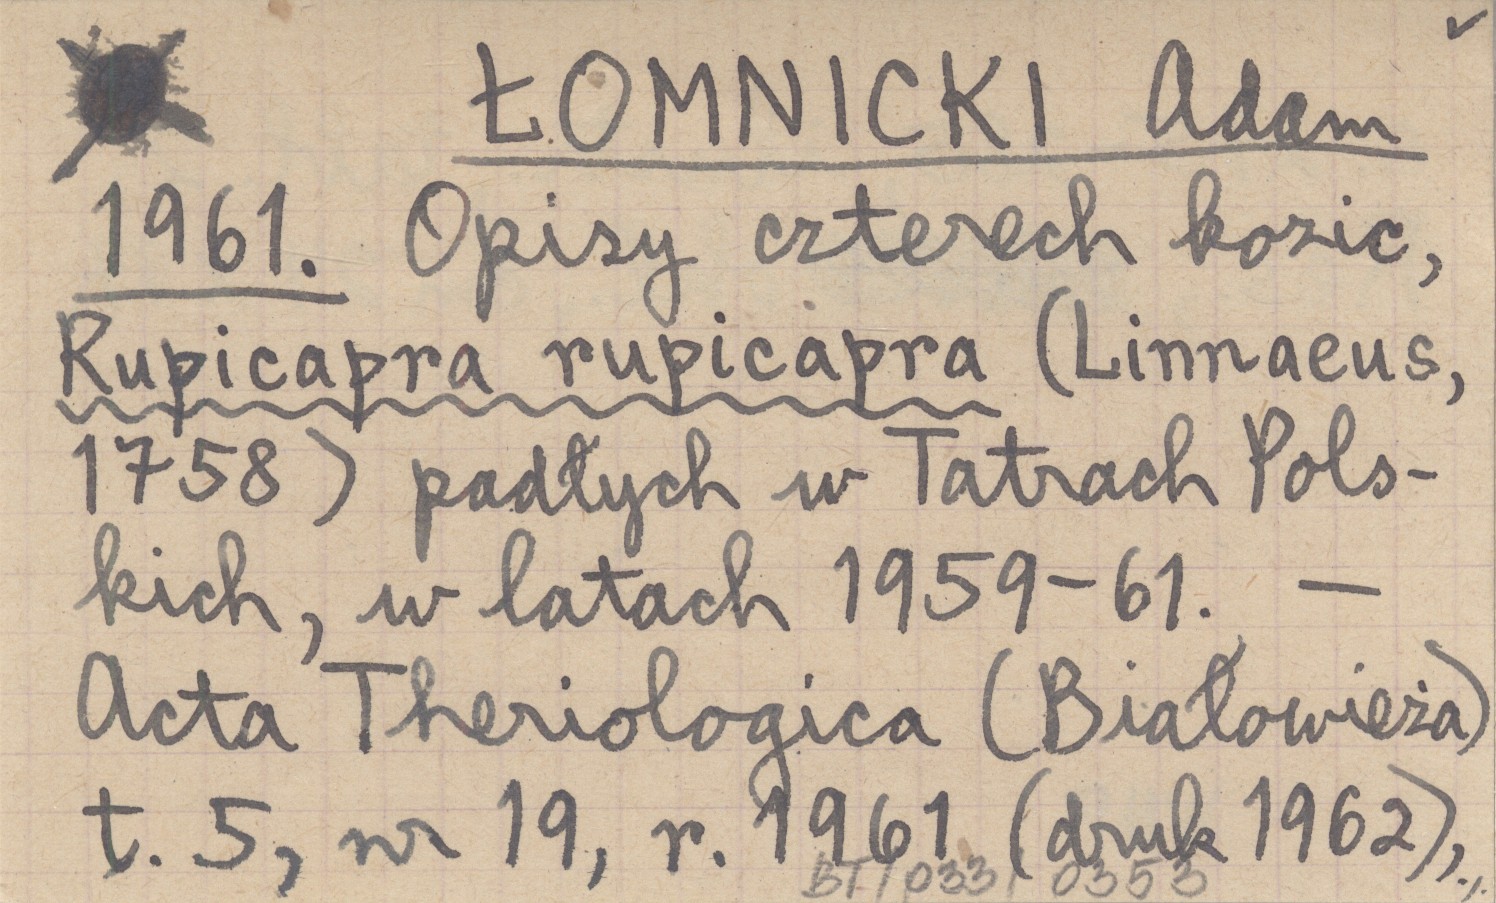 ŁOMNICKI Adam
1961. Opisy czterech kozic,
Rupicapra rupicapra (Linnaeus,
1758) padłych w Tatrach Pols-
kich, w latach 1959-61. —
Acta Theriologica (Białowieża)
t. 5, nr 19, r. 1961 (druk 1962),
BT/033/0353